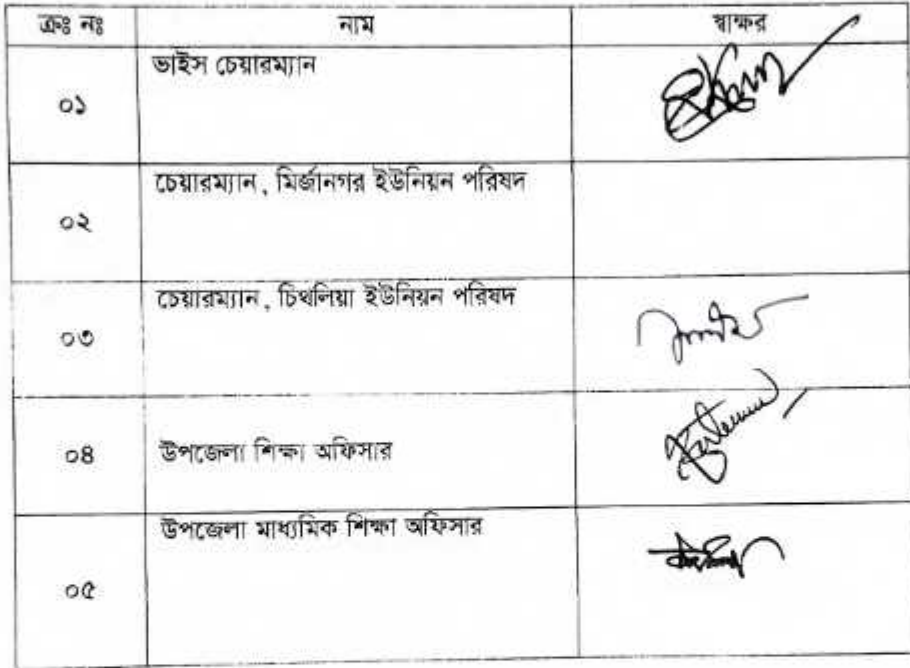 ক্রঃ নঃ নাম স্বাক্ষর
০১ ভাইস চেয়ারম্যান
০২ চেয়ারম্যান, মির্জানগর ইউনিয়ন পরিষদ
০৩ চেয়ারম্যান, চিথলিয়া ইউনিয়ন পরিষদ
০৪ উপজেলা শিক্ষা অফিসার
০৫ উপজেলা মাধ্যমিক শিক্ষা অফিসার